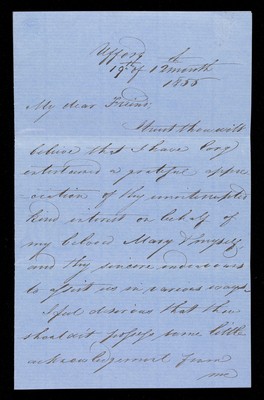 Ufford
19th of 12 month
1855
My dear Friend,
I trust thou wilt
believe that I have long
entertained a grateful appre
-ciation of thy uninterrupted
kind interest on behalf of
my beloved Mary & myself
and thy sincere endeavours
to assist us in various ways.
I feel desirous that thou
shouldst possess some little
acknowledgement from
me